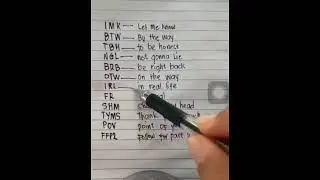 IMK — Let me know
BTW — By the way
TBH — to be honest
NGL — not gonna lie
BRB — be right back
OTW — on the way
IRL — in real life
FR
SHM head
TYMS — Thank
POV — point of
FFP2 — follow for part